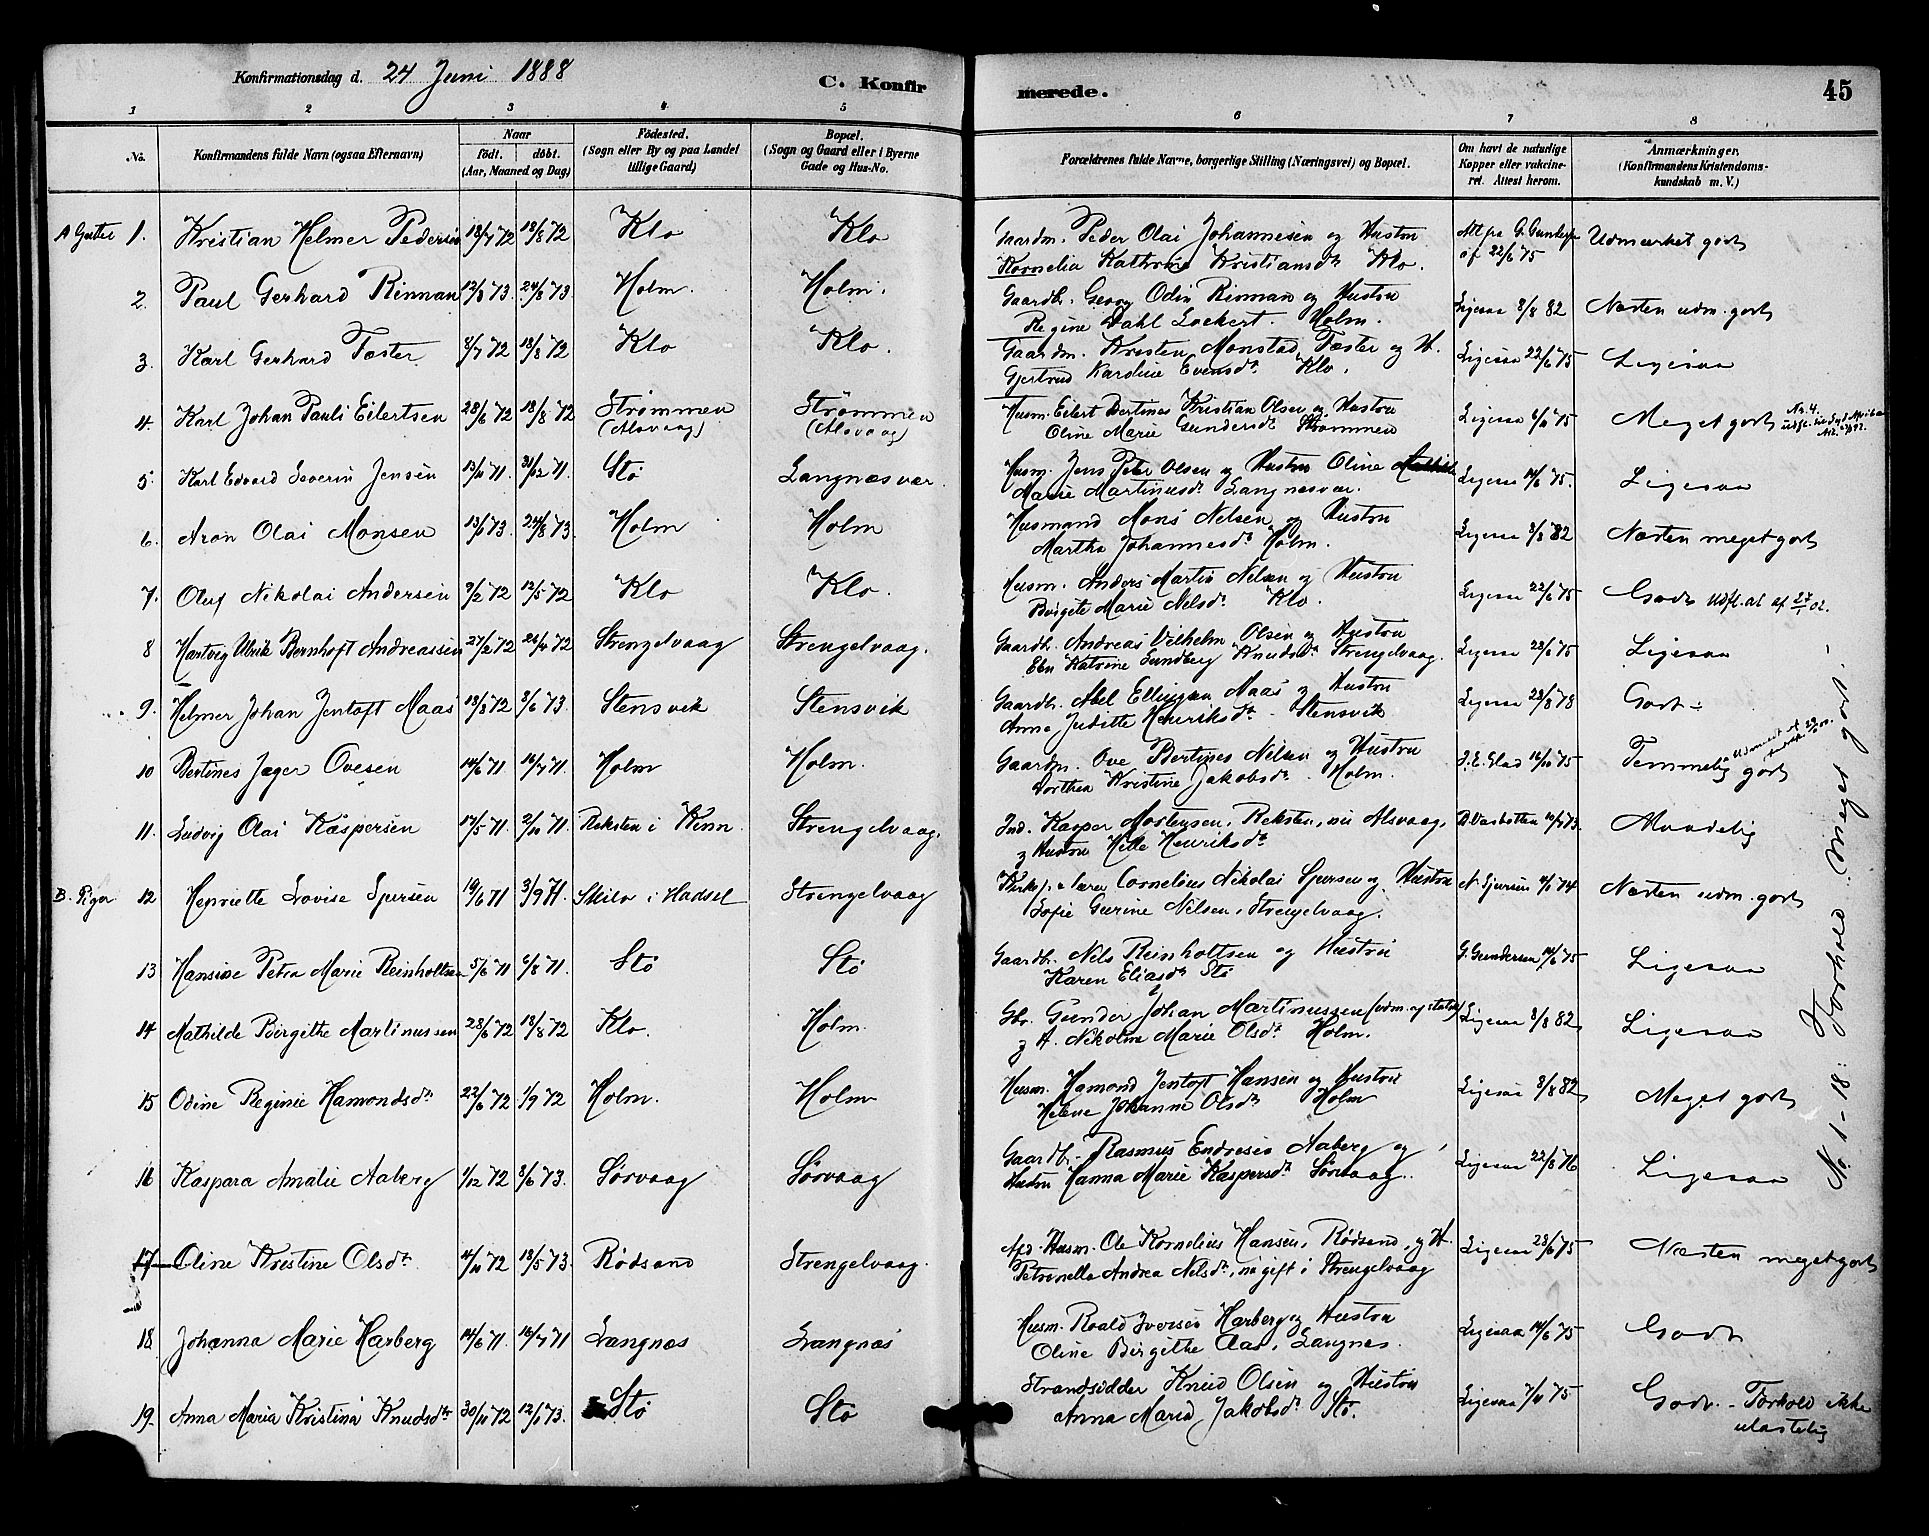 Konfirmationsdag d. 24 Juni 1888
C. Konfirmerede.
45
1 2 3 4 5 6 7 8
No.
Konfirmandens fulde Navn (ogsaa Efternavn)
Naar født. døbt. (Aar, Maaned og Dag)
Fødested. (Sogn eller By og paa Landet tillige Gaard)
Bopæl. (Sogn og Gaard eller i Byerne Gade og Hus-No.
Forældrenes fulde Navne, borgerlige Stilling (Næringsvei) og Bopæl.
Om havt de naturlige Kopper eller vakcineret. Attest herom.
Anmærkninger, (Konfirmandens Kristendomskundskab m. V.)
A Gutter 1. Kristian Helmer Pedersen 18/7 72 18/8 72 Klo Klo Gaardm. Peder Olai Johannesen og Hustru
Kornelia Kathrine Kristiansdt. Klo. Att fra G. Gundersen af 22/6 75 Udmærket godt
2. Paul Gerhard Rinnan 12/3 73. 24/8 73 Holm. Holm. Gaardb. Georg Odin Rinnan og Hustru
Regine Dahl Lockert. Holm. Ligesaa 8/8 82 Næsten udm. godt
3. Karl Gerhard Toster 8/7 72 18/8 72 Klo Klo. Gaardm. Kristen Monstad Toster og H.
Gjertrud Karoline Evensdt. Klo. Ligesaa 22/6 75 Ligesaa
4. Karl Johan Pauli Eilertsen 28/6 72 18/8 72 Strømmen (Alsvaag) Strømmen (Alsvaag) Husm. Eilert Bertines Kristian Olsen og Hustru
Oline Marie Gundersdt. Strømmen Ligesaa 6/11 75 Meget godt No. 4.
5 Karl Edvard Severin Jensen 13/11 71. 31/12 71. Stø Langnæsvær. Husm. Jens Peter Olsen og Hustru Oline
Marie Martinusdt. Langnæsvær. Ligesaa 14/6 75. Ligesaa
6. Aron Olai Monsen 13/1 73. 24/8 73. Holm Holm Husmand Mons Nelsen og Hustru
Martha Johannesdt. Holm. Ligesaa 8/8 82 Næsten meget godt
7. Oluf Nikolai Andersen 9/2 72 12/5 72 Klo Klo. Husm. Anders Martin Nelsen og Hustru
Birgite Marie Nelsdt. Klo. Ligesaa 22/6 75 Godt Udfl. at. af 27/1 02.
8 Hartvig Ulrik Bernhoft Andreassen 27/2 72 24/4 72 Strengelvaag Strengelvaag. Gaardb. Andreas Vilhelm Olsen og Hustru
Ebu Katrine Sundberg Knudsdt. Strengelvaag. Ligesaa 23/6 75 Ligesaa
9. Helmer Johan Jentoft Maas 18/8 72 3/6 73. Stensvik Stensvik Gaardb. Abel Ellingsen Maas og Hustru
Anna Judette Henriksdt. Stensvik Ligesaa 28/8 78 Godt
10 Bertines Jæger Ovesen 14/6 71 16/7 71. Holm Holm. Gaardm. Ove Bertines Nilsen og Hustru
Dorthea Kristine Jakobsdt. Holm. J. E. Elad 16/10 75 Temmelig godt
11. Ludvig Olai Kaspersen 17/5 71. 2/11 71. Reksten i Kinn. Strengelvaag. Ind. Kasper Mostensen, Reksten, nu Alsvaag,
og Hustru Helle Henriksdt. 10/7 73. Maadelig
B. Piger 12 Henriette Lovise Spersen 19/6 71 3/9 71. i Hadsel Strengelvaag Kirkes. & lærer Cornelius Nikolai Spersen og Hustru
Sofie Gurine Nilsen, Strengelvaag. 4/6 74 Næsten udm. godt
13 Hansine Petra Marie Reinholtsen 5/6 71 6/8 71. Stø Stø Gaardb. Nils Reinholtsen og Hustru
Karen Eliasdt. Stø G. Gundersen 14/6 75 Ligesaa
14 Mathilde Birgithe Martinussen 28/6 72 18/8 72 Klo. Holm. Gbr. Gunder Johan Martinussen
og H. Nikoline Marie Olsdt. Holm. Ligesaa 8/8 82 Ligesaa
15 Odine Reginie Hamondsdt. 22/6 72 1/9 72 Holm. Holm Husm. Hamond Jentoft Hansen og Hustru
Helene Johanne Olsdt. Holm Ligesaa 8/8 82 Meget godt
16 Kaspara Amalie Aaberg 1/12 72 8/6 73. Sørvaag Sørvaag Gaardb. Rasmus Endresen Aaberg og
Hustru Hanna Marie Kaspersdt. Sørvaag. Ligesaa 22/8 76 Ligesaa
17 Oline Kristine Olsdt. 14/10 72 18/5 73. Rødsand Strengelvaag. Afd. Husm. Ole Kornelius Hansen, Rødsand, og H.
Petronella Andrea Nelsdt., nu gift i Strengelvaag Ligesaa 23/6 75 Næsten meget godt
18. Johanna Marie Harberg 14/6 71. 16/7 71 Langnæs Langnæs Husm. Roald Iversen Harberg og Hustru
Oline Birgithe Aas, Langnes. Ligesaa 14/6 75 Godt
19. Anna Maria Kristina Knudsdtr 30/10 72 12/1 73. Stø Stø Strandsidder Knud Olsen og Hustru
Anna Maria Jakobsdt. Stø. Ligesaa 7/11 75 Godt. - Forhold ikke
ulastelig
No. 1-18: Forhold: Meget godt. -